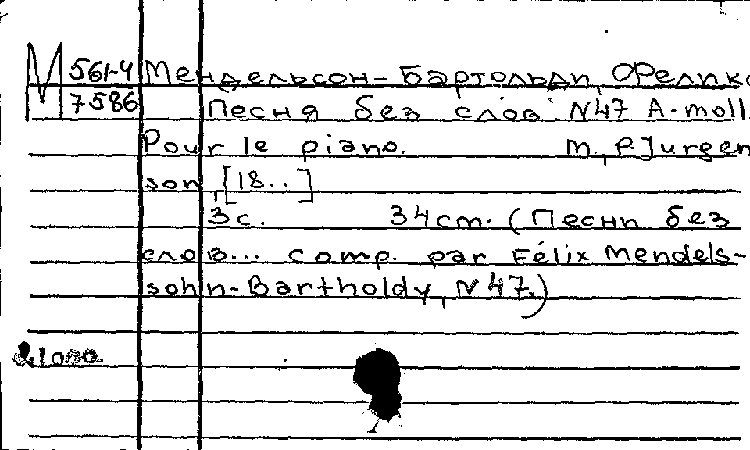 М 561-4 Мендельсон-Бартольди, Феликс
7586 Песня без слов N47 A-moll.
Pour le piano. M., P. Jurgen
son, [18..]
3с. 34cm. (Песни без
слов... comp. par Félix Mendels-
sohn-Bartholdy, N 47.)